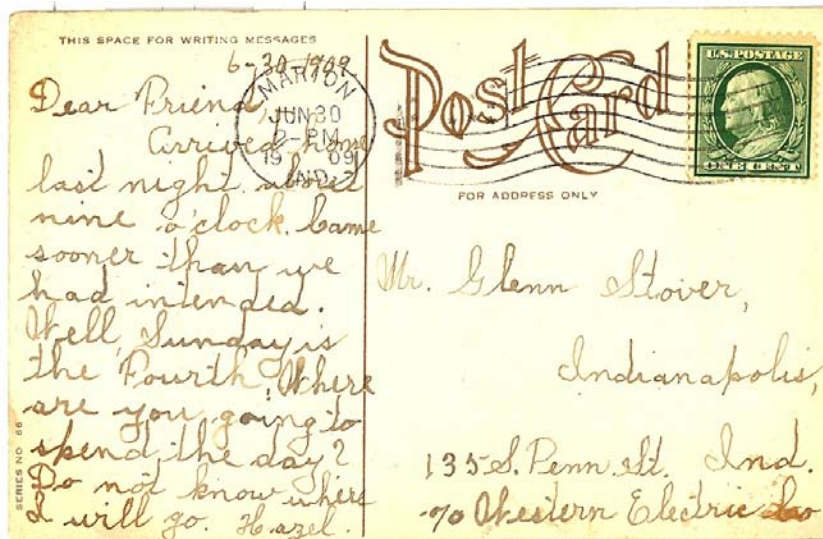 THIS SPACE FOR WRITING MESSAGES
6-30-1909
Dear Friend,
Arrived home
last night about
nine o'clock. Came
sooner than we
had intended.
Well, Sunday is
the Fourth, Where
are you going to
spend the day?
Do not know where
I will go. Hazel.
SERIES NO 66
MARION
JUN 30
2-PM
19 09
IND.
Post Card
FOR ADDRESS ONLY
U.S. POSTAGE
ONE CENT
Mr. Glenn Stover,
Indianapolis,
135 S. Penn. St. Ind.
℅ Western Electric Co